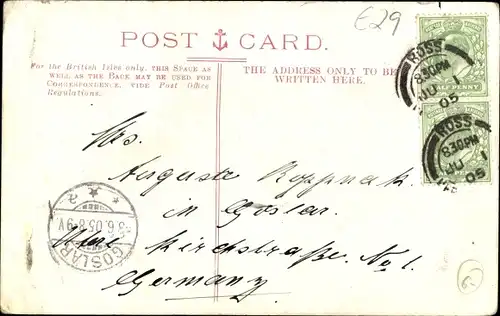 £29
POST CARD.
For the British Isles only, THIS SPACE AS
WELL AS THE BACK MAY BE USED FOR
CORRESPONDENCE, VIDE Post Office
Regulations.
THE ADDRESS ONLY TO BE
WRITTEN HERE.
ROSS
8.30PM
JU 1
05
HALFPENNY
ROSS
8.30PM
JU 1
05
Mrs.
Auguste
in Goslar.
Kirchstraße No 1.
Germany
GOSLAR
3.6.05.8-9V.
* a
6-